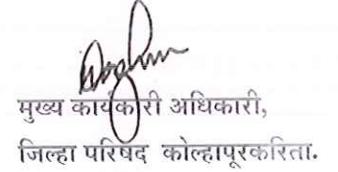 मुख्य कार्यकारी अधिकारी,
जिल्हा परिषद कोल्हापूरकरिता.